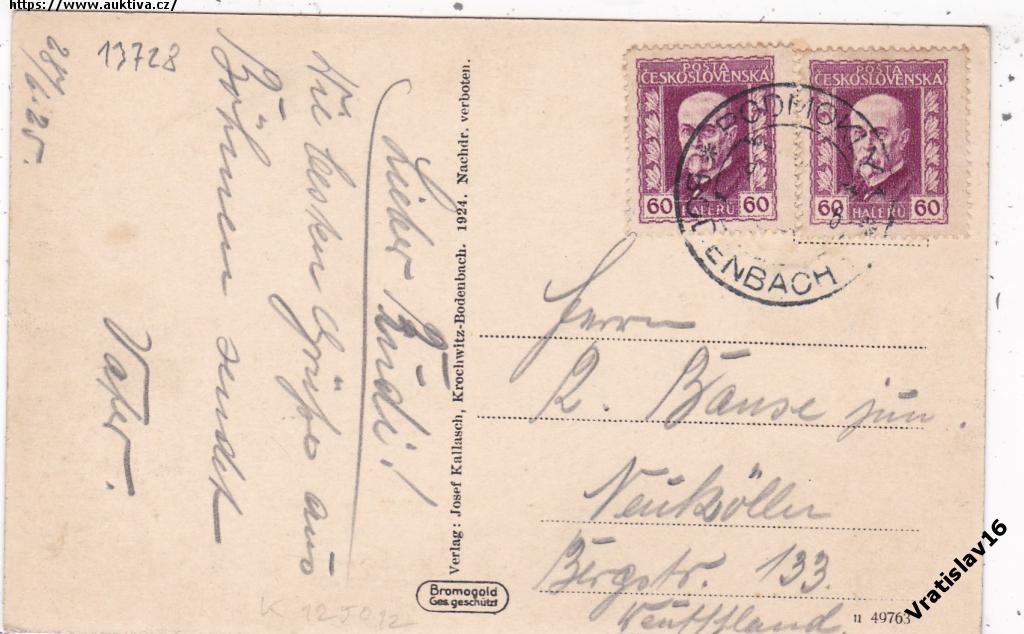 https://www.auktiva.cz/
28/6.25.
13728
Lieber Rudi!
Die besten Grüße aus
Böhmen sendet
Vater.
Verlag: Josef Kallasch, Krochwitz-Bodenbach. 1924. Nachdr. verboten.
POŠTA
ČESKOSLOVENSKÁ
60 HALÉŘŮ 60
POŠTA
ČESKOSLOVENSKÁ
60 HALÉŘŮ 60
PODMOKLY
BODENBACH
Herrn
R. Banse jun.
Neukölln
Bergstr. 133.
Deutschland
Bromogold
Ges. geschützt
K 12502
11 49763
Vratislav16